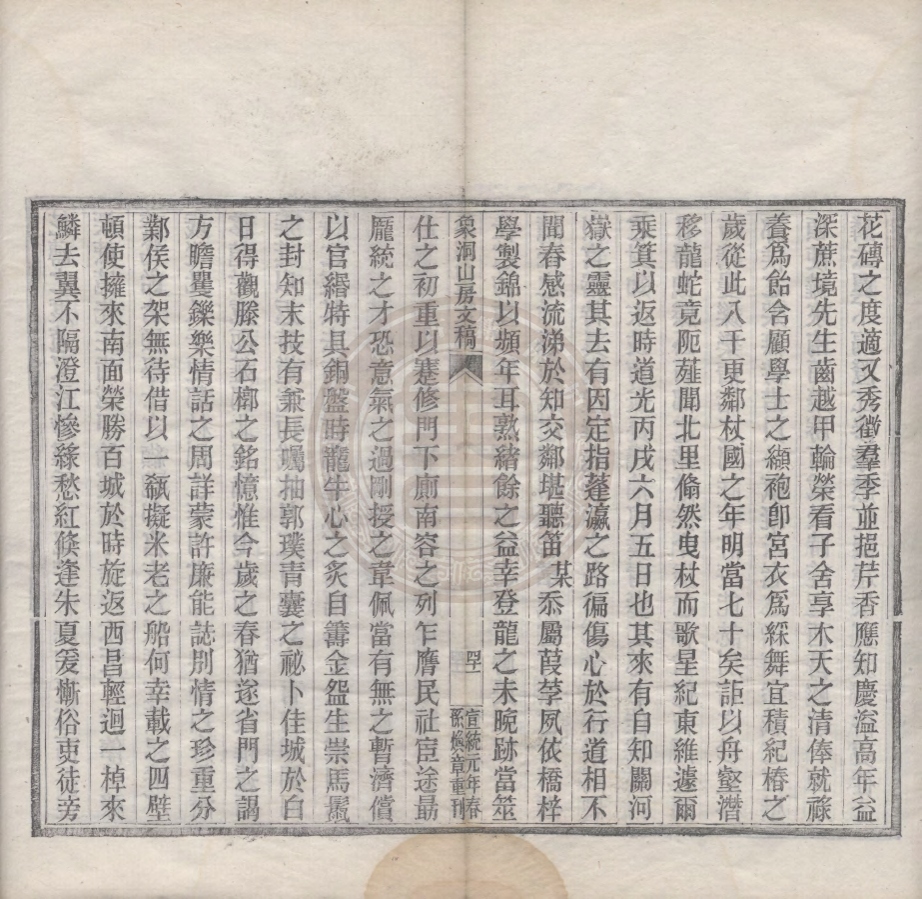 花磚之度適又秀徵羣季並挹芹香應知慶溢高年益
深蔗境先生齒越甲輪榮看子舍享木天之清俸就祿
養爲飴含顧學士之纈袍卽宮衣爲綵舞宜積紀椿之
歲從此八千更鄰杖國之年明當七十矣詎以舟壑潛
移龍蛇竟阨薤聞北里翛然曳杖而歌星紀東維遽爾
乘箕以返時道光丙戌六月五日也其來有自知關河
嶽之靈其去有因定指蓬瀛之路徧傷心於行道相不
聞舂感流涕於知交鄰堪聽笛某忝屬葭莩夙依橋梓
學製錦以頻年耳熟緒餘之益幸登龍之未晚跡當筮
象洞山房文稿
四十一
宣統元年春
孫煥章重刊
仕之初重以蹇修門下廁南容之列乍膺民社宦途最
龐統之才恐意氣之過剛授之韋佩當有無之暫濟償
以官緡特具銅盤時龍牛心之炙自籌金盌生崇馬鬣
之封知末技有兼長囑抽郭璞青囊之祕卜佳城於白
日得觀滕公石槨之銘憶惟今歲之春猶遂省門之謁
方瞻矍鑠樂情話之周詳蒙許廉能誌別情之珍重分
鄴侯之架無待借以一瓻擬米老之船何幸載之四壁
頓使擁來南面榮勝百城於時旋返西昌輕迴一棹來
鱗去翼不隔澄江慘綠愁紅倏逢朱夏爰慚俗吏徒旁